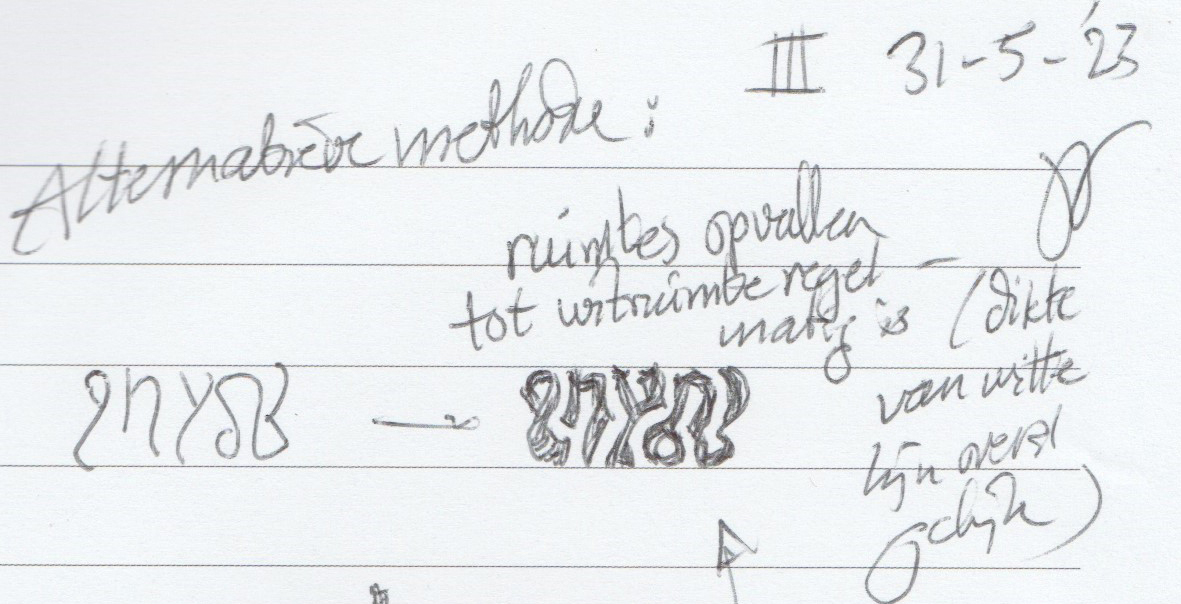 III 31-5-'23
Alternatieve methode:
ruimtes opvullen
tot witruimte regel-
matig is (dikte
van witte
lijn overal
gelijk)